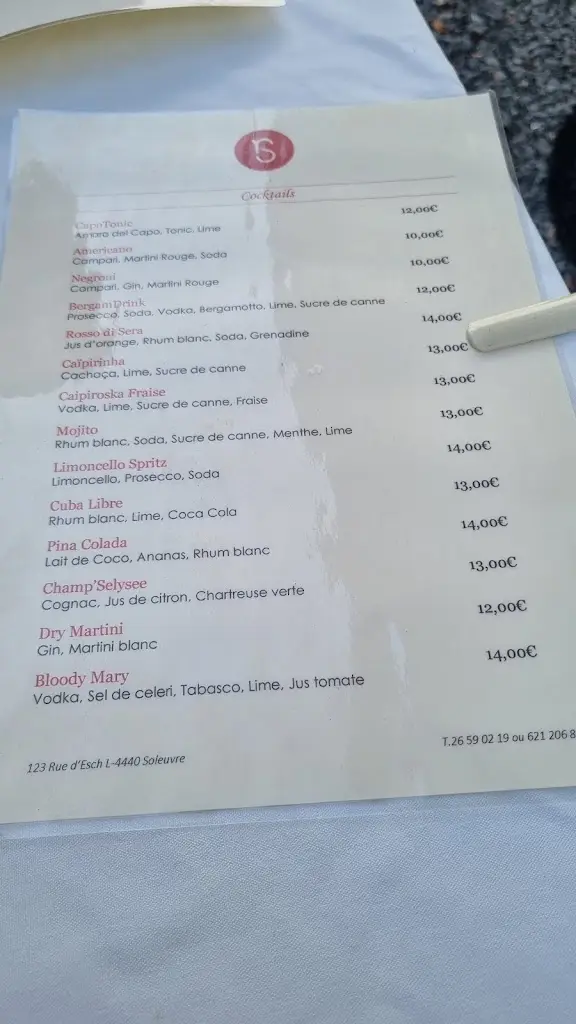 rs
Cocktails
CapoTonic 12,00€
Amaro del Capo, Tonic, Lime
Americano 10,00€
Campari, Martini Rouge, Soda
Negroni 10,00€
Campari, Gin, Martini Rouge
BergamDrink 12,00€
Prosecco, Soda, Vodka, Bergamotto, Lime, Sucre de canne
Rosso di Sera 14,00€
Jus d'orange, Rhum blanc, Soda, Grenadine
Caïpirinha 13,00€
Cachaça, Lime, Sucre de canne
Caipiroska Fraise 13,00€
Vodka, Lime, Sucre de canne, Fraise
Mojito 13,00€
Rhum blanc, Soda, Sucre de canne, Menthe, Lime
Limoncello Spritz 14,00€
Limoncello, Prosecco, Soda
Cuba Libre 13,00€
Rhum blanc, Lime, Coca Cola
Pina Colada 14,00€
Lait de Coco, Ananas, Rhum blanc
Champ'Selysee 13,00€
Cognac, Jus de citron, Chartreuse verte
Dry Martini 12,00€
Gin, Martini blanc
Bloody Mary 14,00€
Vodka, Sel de celeri, Tabasco, Lime, Jus tomate
123 Rue d'Esch L-4440 Soleuvre
T.26 59 02 19 ou 621 206 8